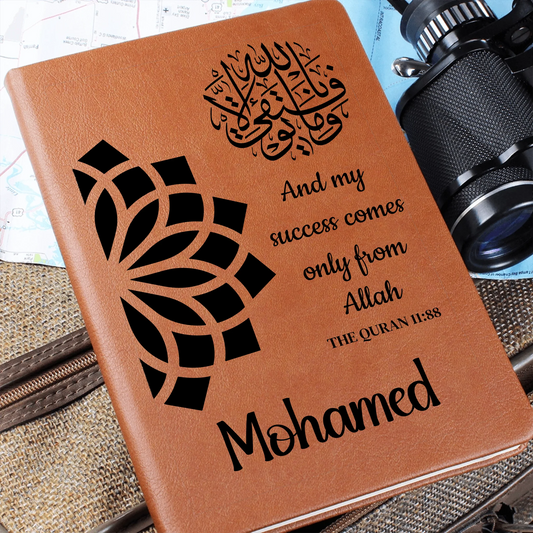 وما توفيقي إلا بالله
And my
success comes
only from
Allah
THE QURAN 11:88
Mohamed